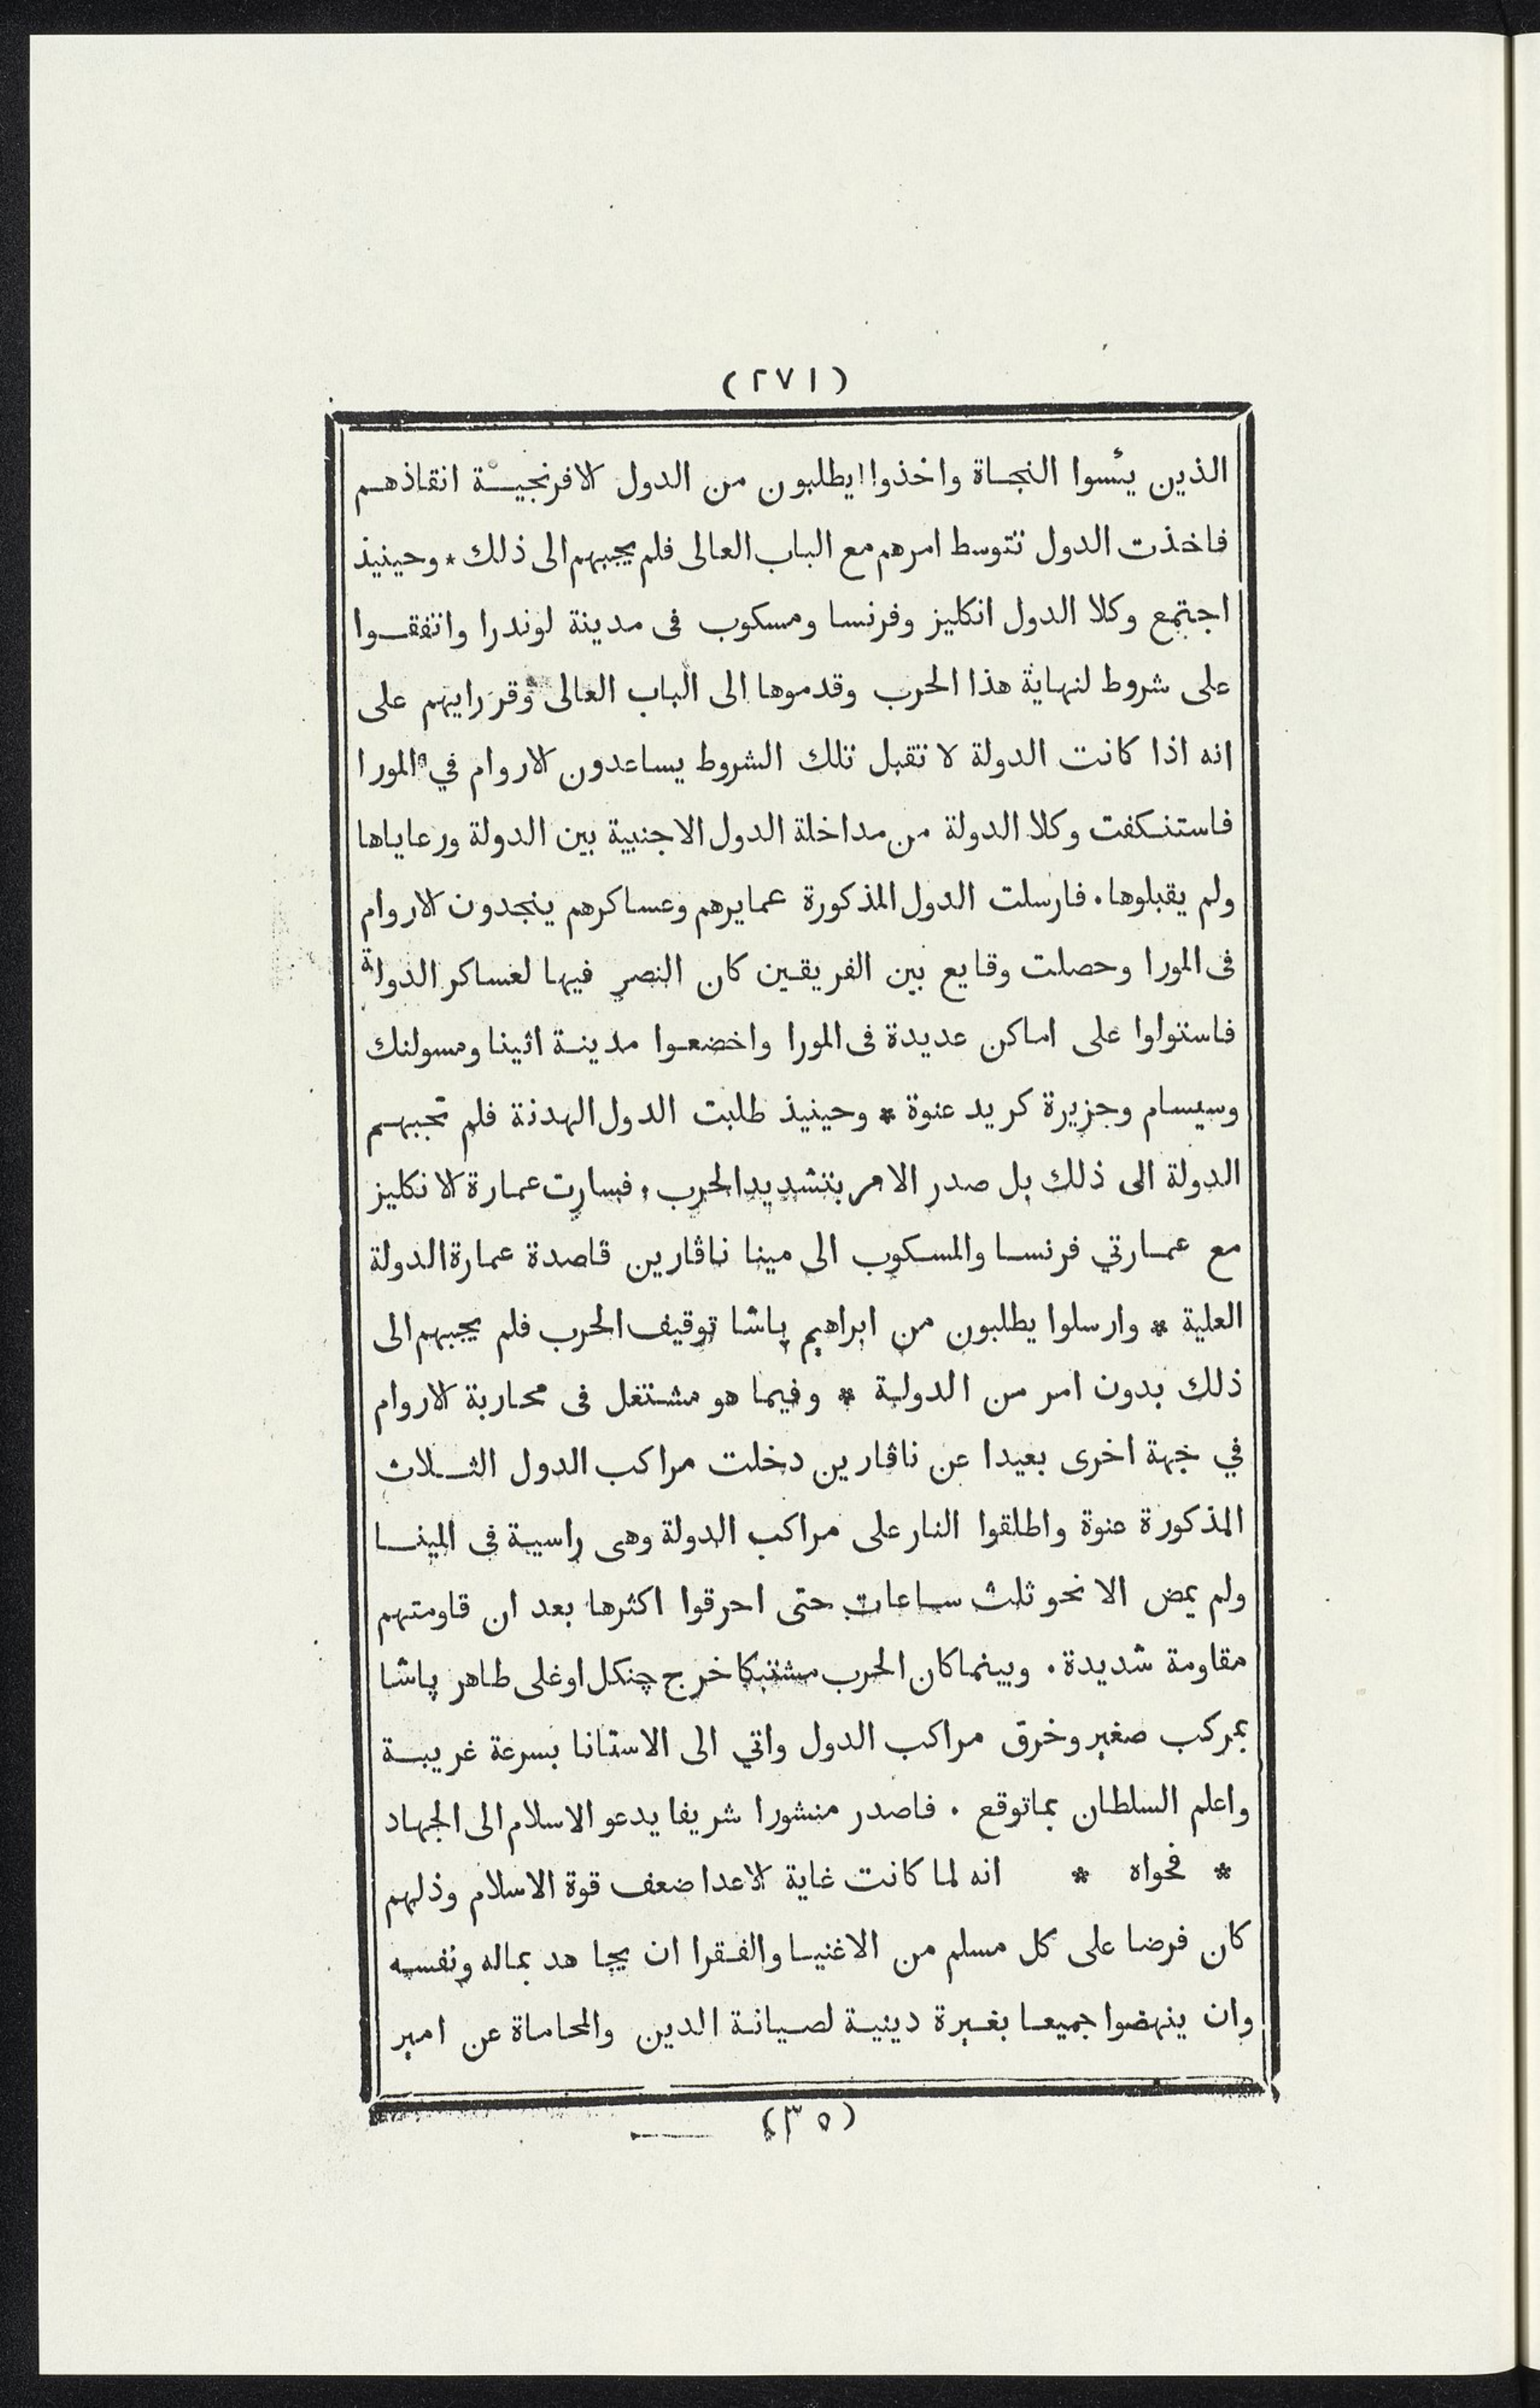 (٢٧١)
الذين يئسوا النجاة واخذوا يطلبون من الدول الافرنجية انقاذهم
فاخذت الدول تتوسط امرهم مع الباب العالى فلم يجبهم الى ذلك * وحينيذ
اجتمع وكلا الدول انكليز وفرنسا ومسكوب فى مدينة لوندرا واتفقوا
على شروط لنهاية هذا الحرب وقدموها الى الباب العالى وقر رايهم على
انه اذا كانت الدولة لا تقبل تلك الشروط يساعدون الاروام في المورا
فاستنكفت وكلا الدولة من مداخلة الدول الاجنبية بين الدولة ورعاياها
ولم يقبلوها . فارسلت الدول المذكورة عمايرهم وعساكرهم ينجدون الاروام
فى المورا وحصلت وقايع بين الفريقين كان النصر فيها لعساكر الدولة
فاستولوا على اماكن عديدة فى المورا واخضعوا مدينة اثينا ومسولنك
وسيسام وجزيرة كريد عنوة * وحينيذ طلبت الدول الهدنة فلم تجبهم
الدولة الى ذلك بل صدر الامر بتشديد الحرب . فسارت عمارة الانكليز
مع عمارتي فرنسا والمسكوب الى مينا ناڤارين قاصدة عمارة الدولة
العلية * وارسلوا يطلبون من ابراهيم پاشا توقيف الحرب فلم يجبهم الى
ذلك بدون امر من الدولة * وفيما هو مشتغل فى محاربة الاروام
في جهة اخرى بعيدا عن ناڤارين دخلت مراكب الدول الثلاث
المذكورة عنوة واطلقوا النار على مراكب الدولة وهى راسية فى المينا
ولم يمض الا نحو ثلث ساعات حتى احرقوا اكثرها بعد ان قاومتهم
مقاومة شديدة . وبينما كان الحرب مشتبكا خرج چنكل اوغلى طاهر پاشا
بمركب صغير وخرق مراكب الدول واتي الى الاستانا بسرعة غريبة
واعلم السلطان بما توقع . فاصدر منشورا شريفا يدعو الاسلام الى الجهاد
* فحواه * انه لما كانت غاية الاعدا ضعف قوة الاسلام وذلهم
كان فرضا على كل مسلم من الاغنيا والفقرا ان يجاهد بماله ونفسه
وان ينهضوا جميعا بغيرة دينية لصيانة الدين والمحاماة عن امير
(٣٥)